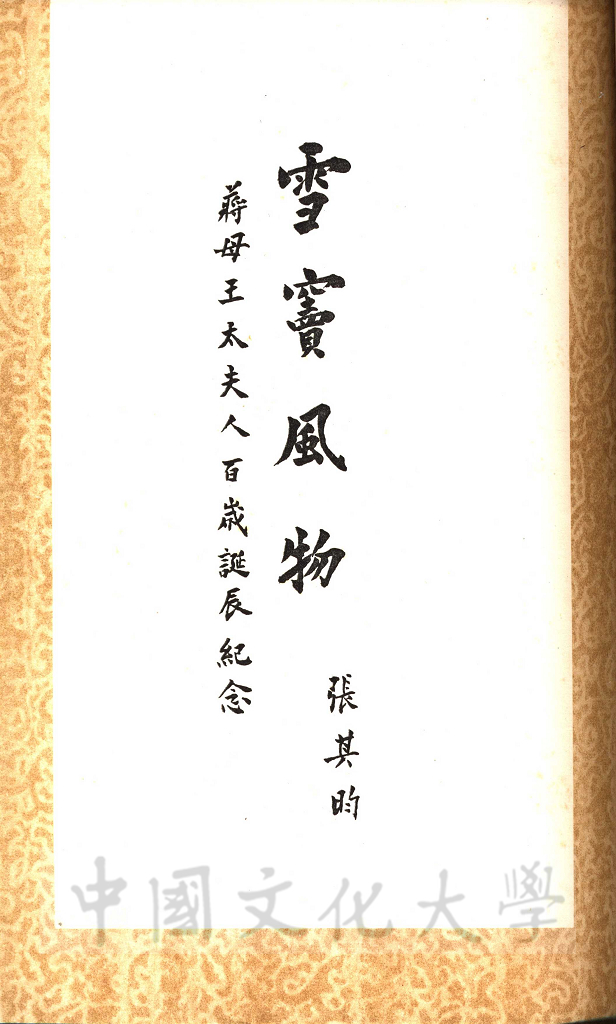 張其昀
雪竇風物
蔣母王太夫人百歲誕辰紀念
中國文化大學